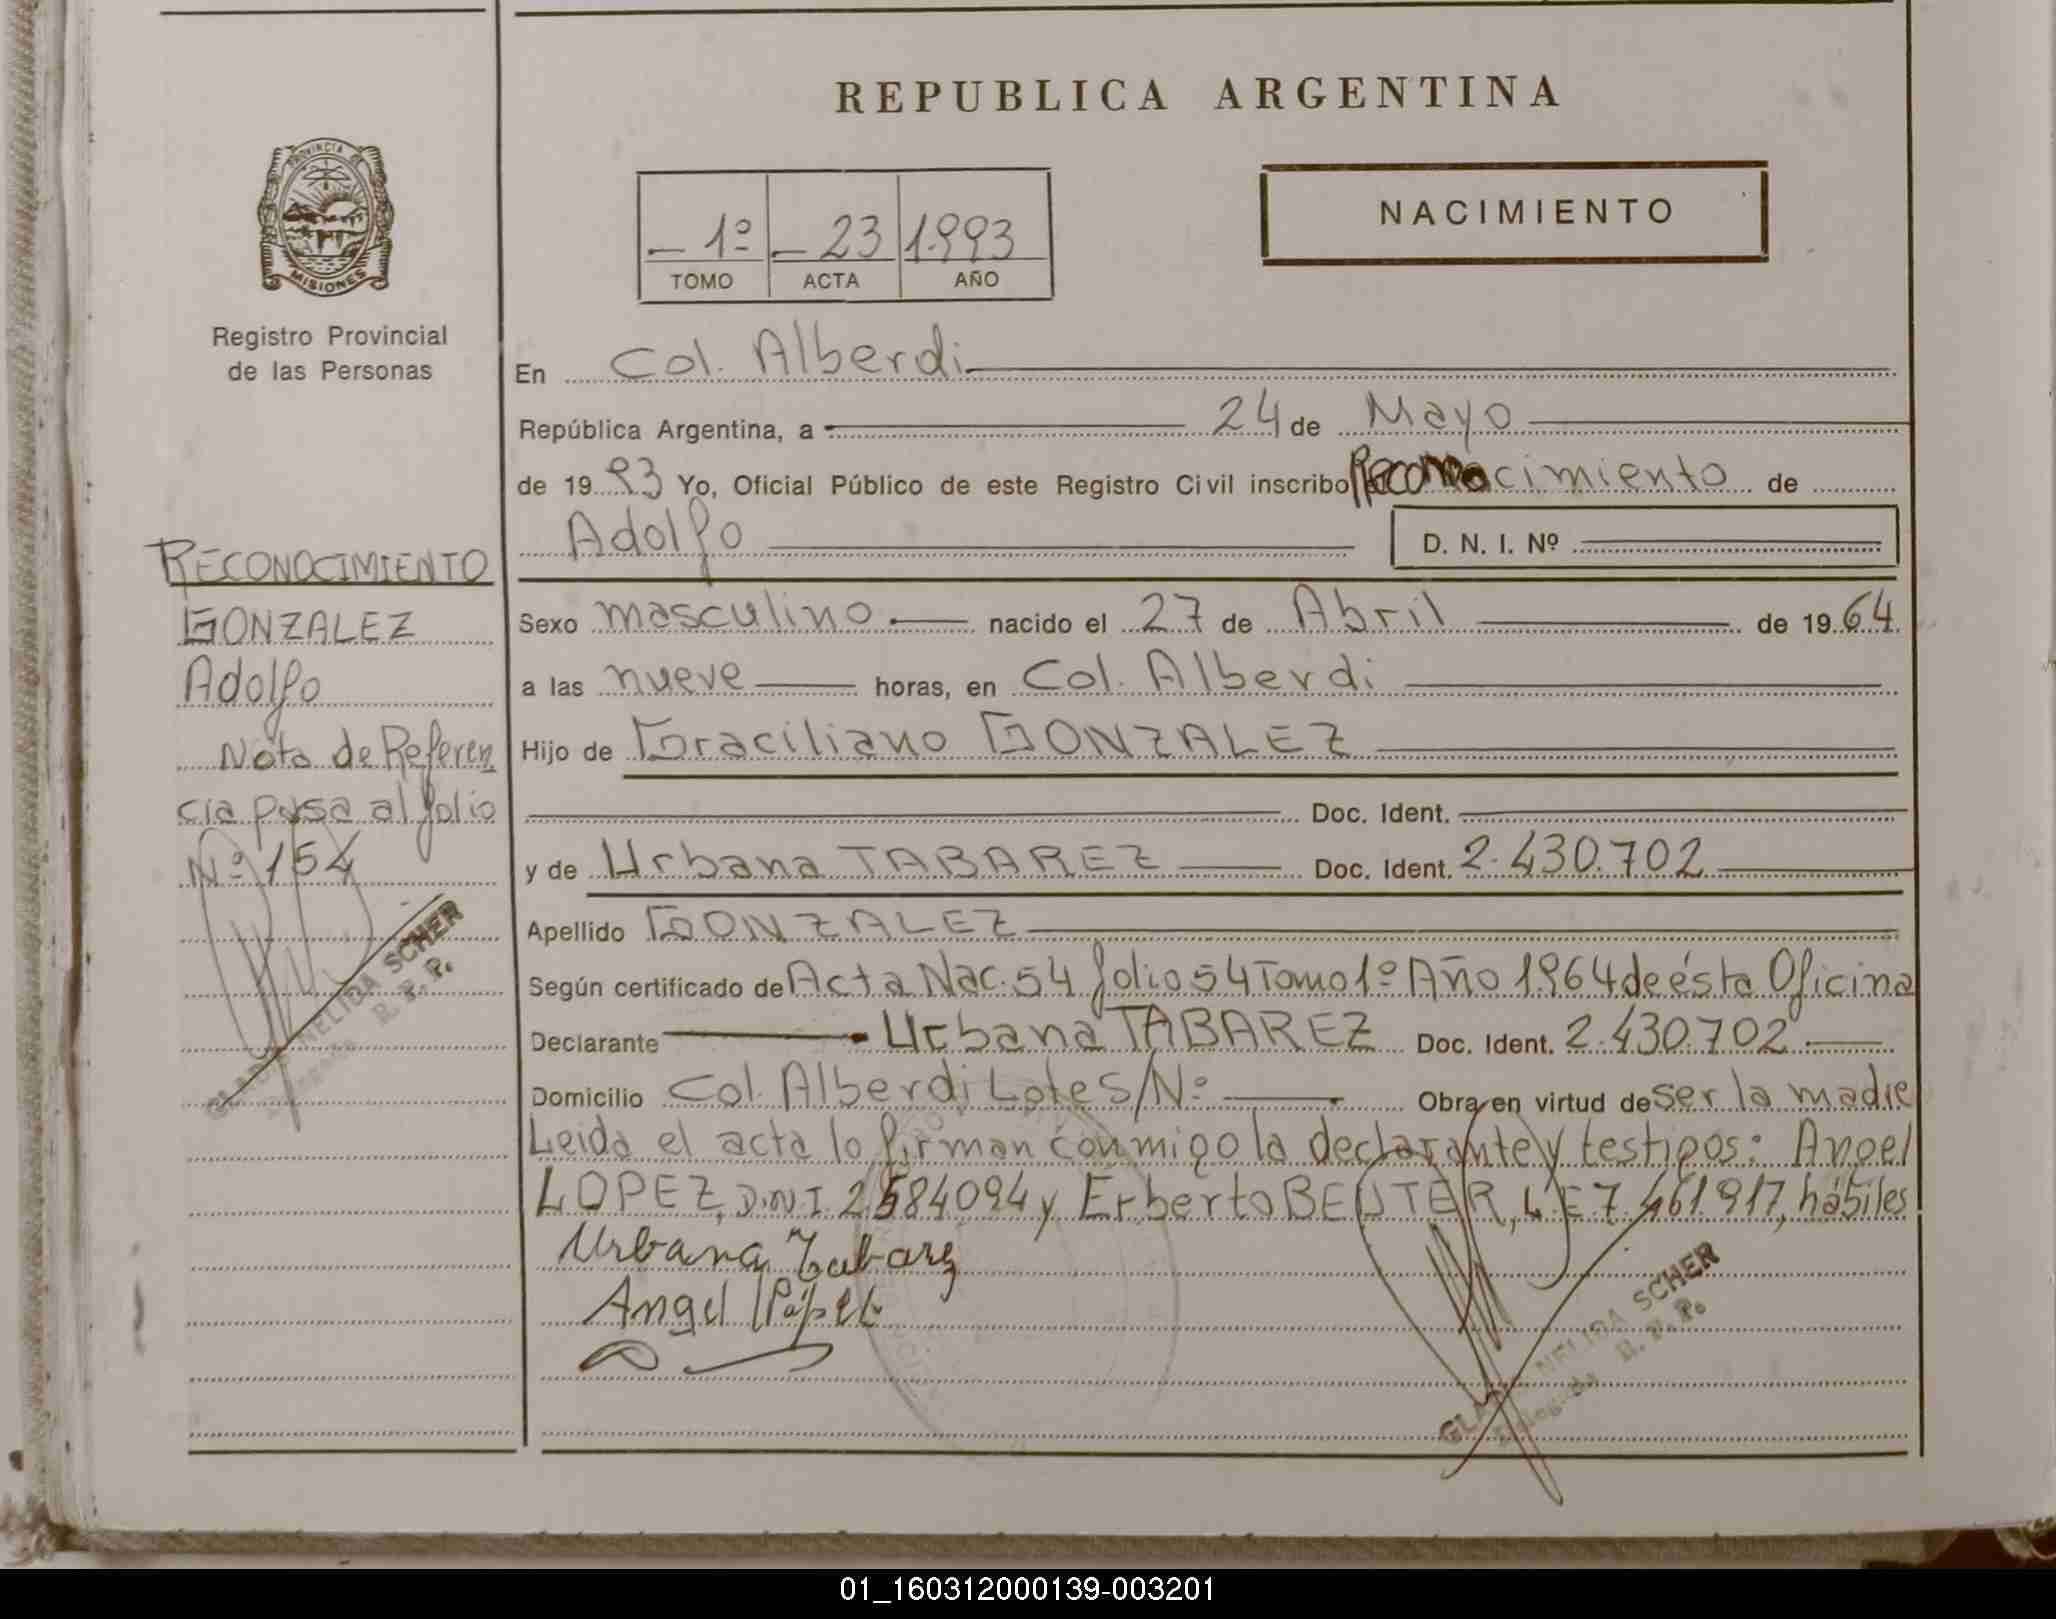 REPUBLICA ARGENTINA
PROVINCIA DE
MISIONES
Registro Provincial
de las Personas
NACIMIENTO
1º 23 1.993
TOMO ACTA AÑO
En Col. Alberdi
República Argentina, a 24 de Mayo
de 1993 Yo, Oficial Público de este Registro Civil inscribo Reconocimiento de
Adolfo D. N. I. Nº
Sexo masculino nacido el 27 de Abril de 1964
a las nueve horas, en Col. Alberdi
Hijo de Graciliano GONZALEZ
Doc. Ident.
y de Urbana TABAREZ Doc. Ident. 2.430.702
Apellido GONZALEZ
Según certificado de Acta Nac. 54 folio 54 Tomo 1º Año 1.964 de ésta Oficina
Declarante Urbana TABAREZ Doc. Ident. 2.430.702
Domicilio Col. Alberdi Lote S/Nº Obra en virtud de ser la madre
Leida el acta lo firman conmigo la declarante y testigos: Angel
LOPEZ, D.N.I. 2584094 y Erberto BEUTER, L.E 7.461.917, hábiles
Urbana Tabarez
Angel
GLADYS NELIDA SCHER
Delegada R. P. P.
RECONOCIMIENTO
GONZALEZ
Adolfo
Nota de Referen
cia pasa al folio
Nº 154
GLADYS NELIDA SCHER
Delegada R. P. P.
01_160312000139-003201